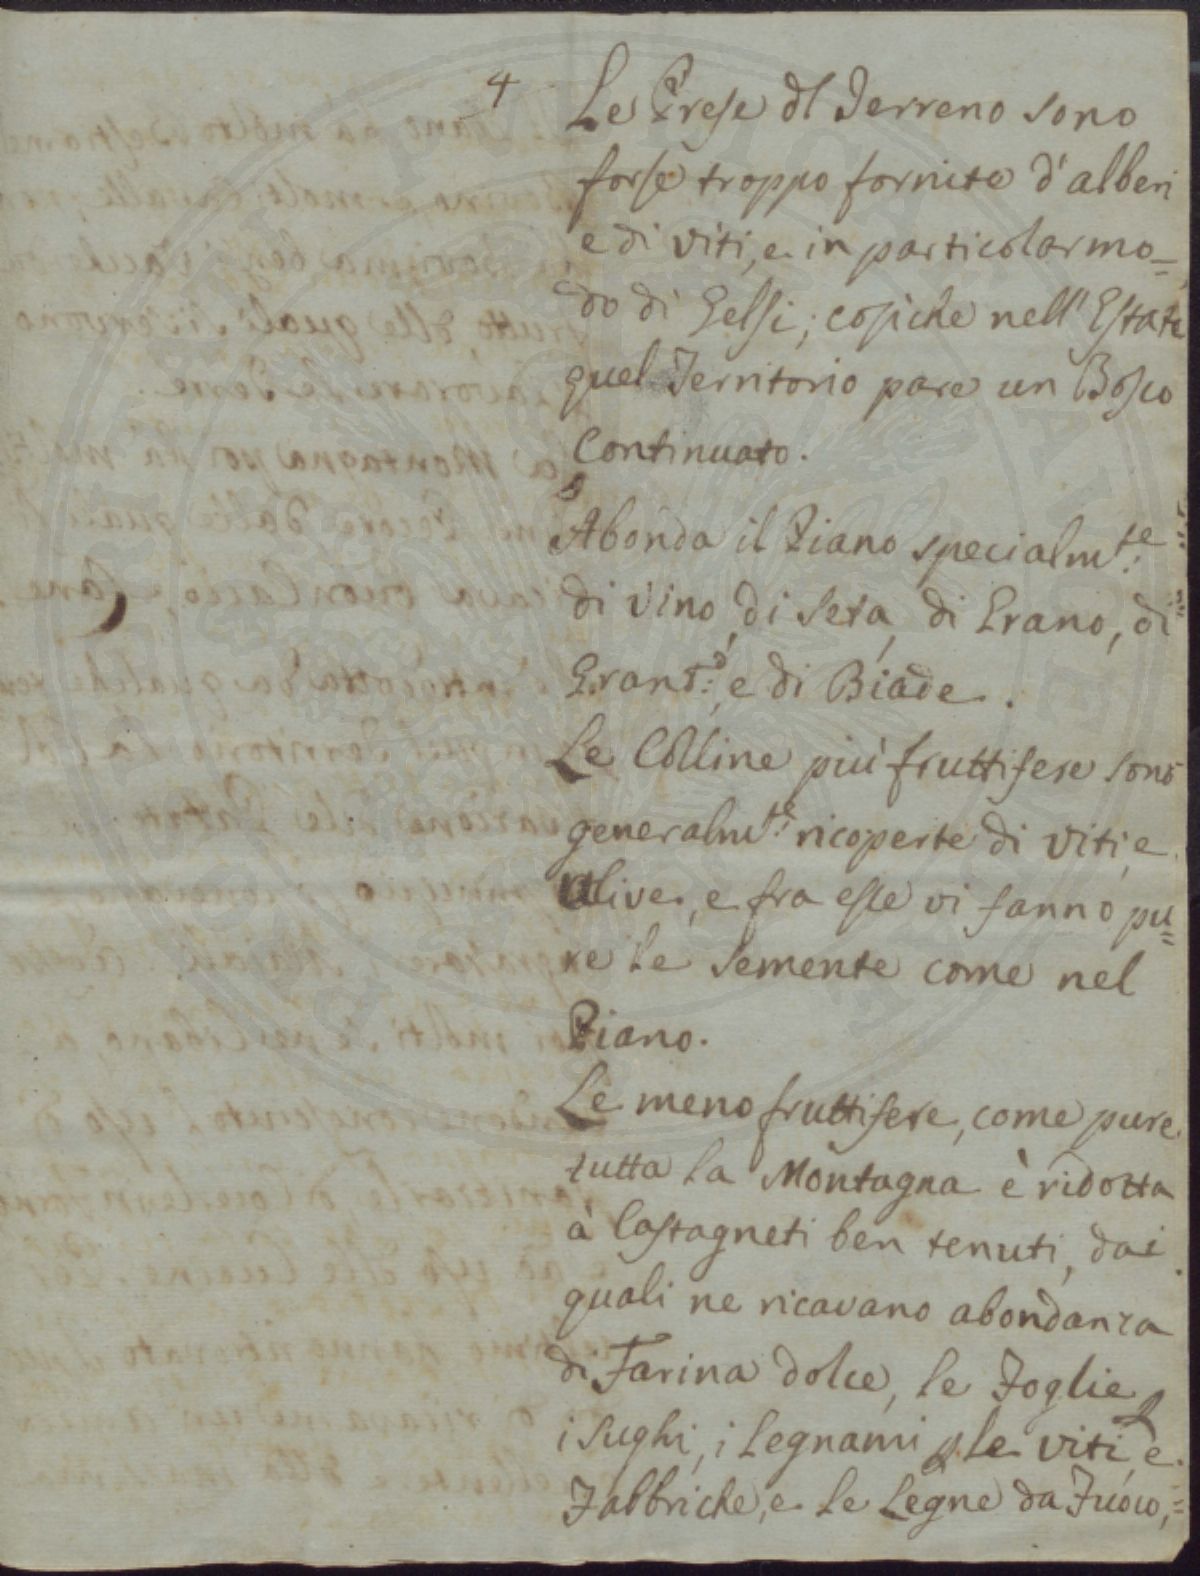 4
Le Prese dl Terreno sono
forse troppo fornite d'alberi
e di viti, e in particolar mo=
do di Gelsi; cosiche nell'Estate
quel Territorio pare un Bosco
Continuato.
Abonda il Piano specialmte:
di Vino, di Seta, di Grano, di
Grant:o, e di Biade.
Le Colline più fruttifere sono
generalmte: ricoperte di Viti, e
Ulive, e fra esse vi fanno pu=
re le Semente come nel
Piano.
Le meno fruttifere, come pure
tutta la Montagna è ridotta
à Castagneti ben tenuti, dai
quali ne ricavano abondanza
di Farina dolce, le Foglie,
i Sughi, i Legnami p le viti, e
Fabbriche, e le Legne da Fuoco,=